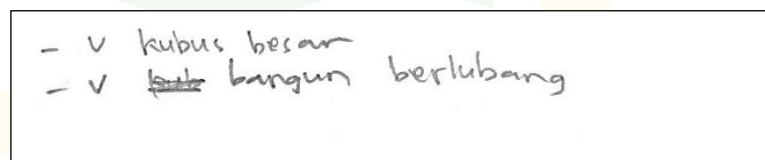 - V kubus besar
- V bangun berlubang